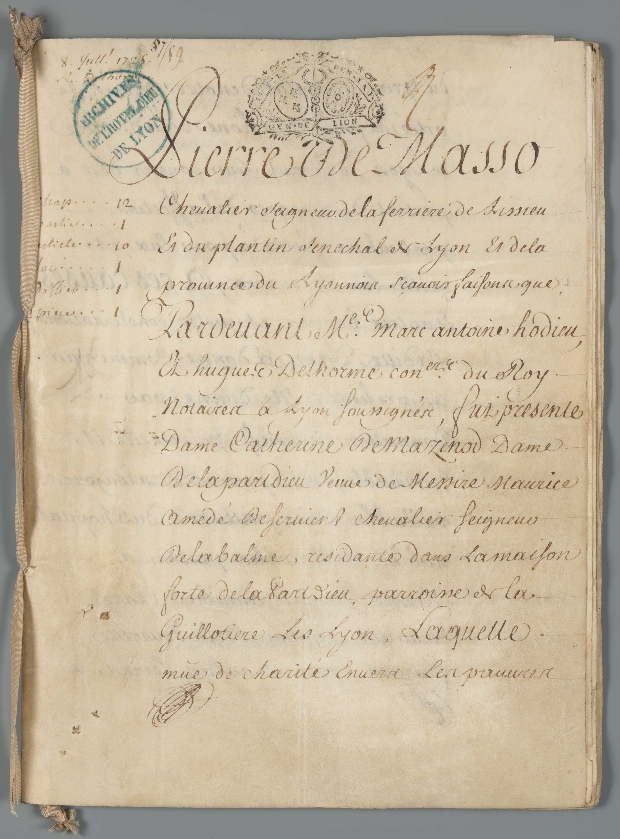 8. Juill.t 1725
ARCHIVES
DE L'HOTEL DIEU
DE LYON
GEN. DE LION
Pierre De Masso
Chevalier seigneur de la ferriere de Lissieu
Et du plantin Senechal de Lyon Et de la
province du Lyonnois scavoir faisons que
Pardevant Me. Marc antoine hodieu,
Et hugues Delhorme con.ers du Roy
Notaires a Lyon soussignes, fut presente
Dame Catherine De Mazenod Dame
De la part dieu Veuve de Messire Maurice
amedé De servient chevalier seigneur
De la balme, residante dans La maison
forte de la Part Dieu, parroisse de la
Guillotiere Les Lyon, Laquelle
müe de charité Envers Les pauvres
12
1
10
1
1
1